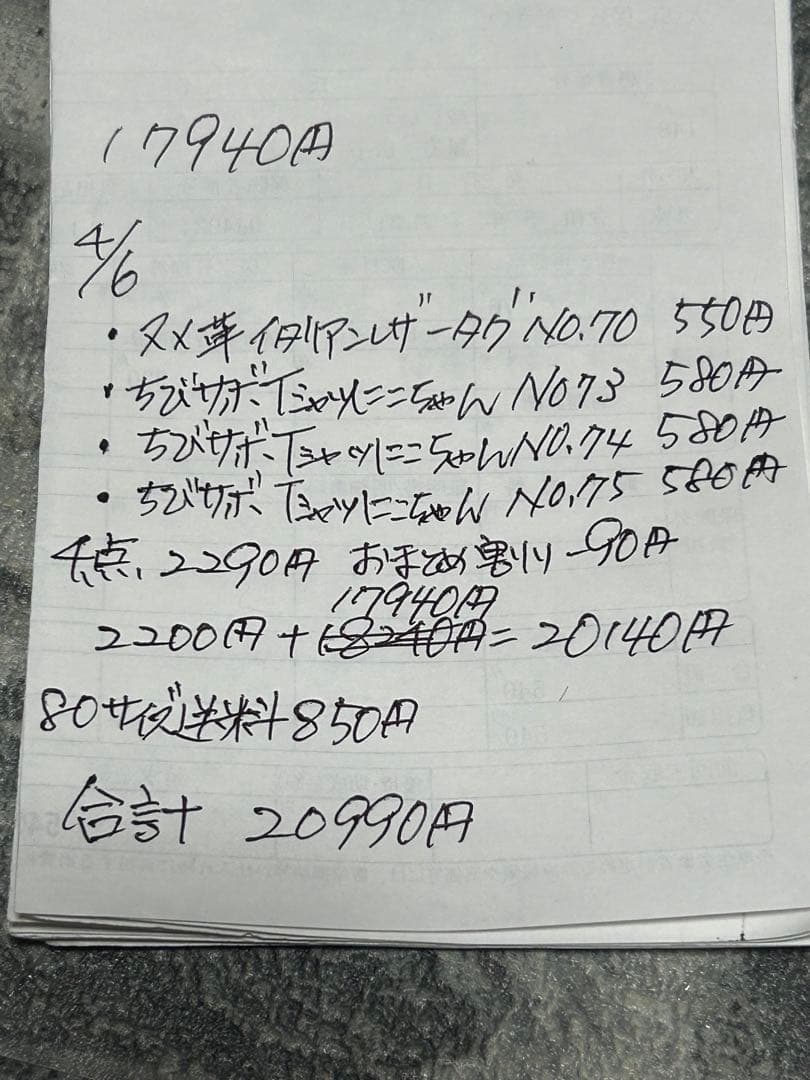 17940円
4/6
・ヌメ革イタリアンレザータグNO.70 550円
・ちびサボTシャツにこちゃんNO73 580円
・ちびサボTシャツにこちゃんNO.74 580円
・ちびサボTシャツにこちゃんNO.75 580円
4点、2290円 おまとめ割り -90円
17940円
2200円+18240円=20140円
80サイズ送料850円
合計 20990円